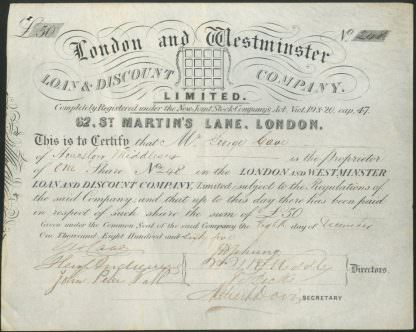 £50 No
London and Westminster
LOAN & DISCOUNT COMPANY.
LIMITED.
Completely Registered under the New Joint Stock Company's Act. Vict. 19 & 20, cap. 47.
62, ST MARTIN'S LANE, LONDON.
This is to Certify that Mr George
of Hounslow Middlesex is the Proprietor
of One Share No 48 in the LONDON AND WESTMINSTER
LOAN AND DISCOUNT COMPANY, Limited, subject to the Regulations of
the said Company; and that up to this day there has been paid
in respect of such share the sum of £50
Given under the Common Seal of the said Company the Eighth day of December
One Thousand Eight Hundred and Sixty five
John Peter
Directors.
SECRETARY